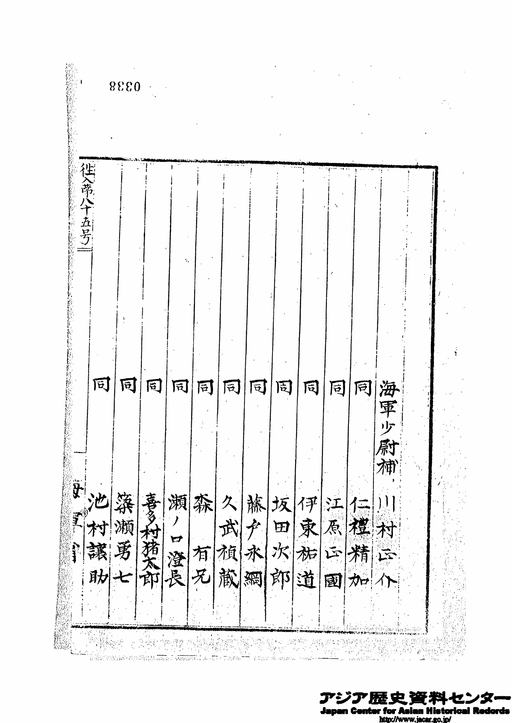 0338
海軍少尉補 川村正介
同 仁禮精加
同 江原正國
同 伊東祐道
同 坂田次郎
同 藤戸永綱
同 久武禎蔵
同 森 有兄
同 瀬ノ口澄長
同 喜多村猪太郎
同 簗瀬勇七
同 池村譲助
往入第八十五号
海軍省
アジア歴史資料センター
Japan Center for Asian Historical Records
http://www.jacar.go.jp/